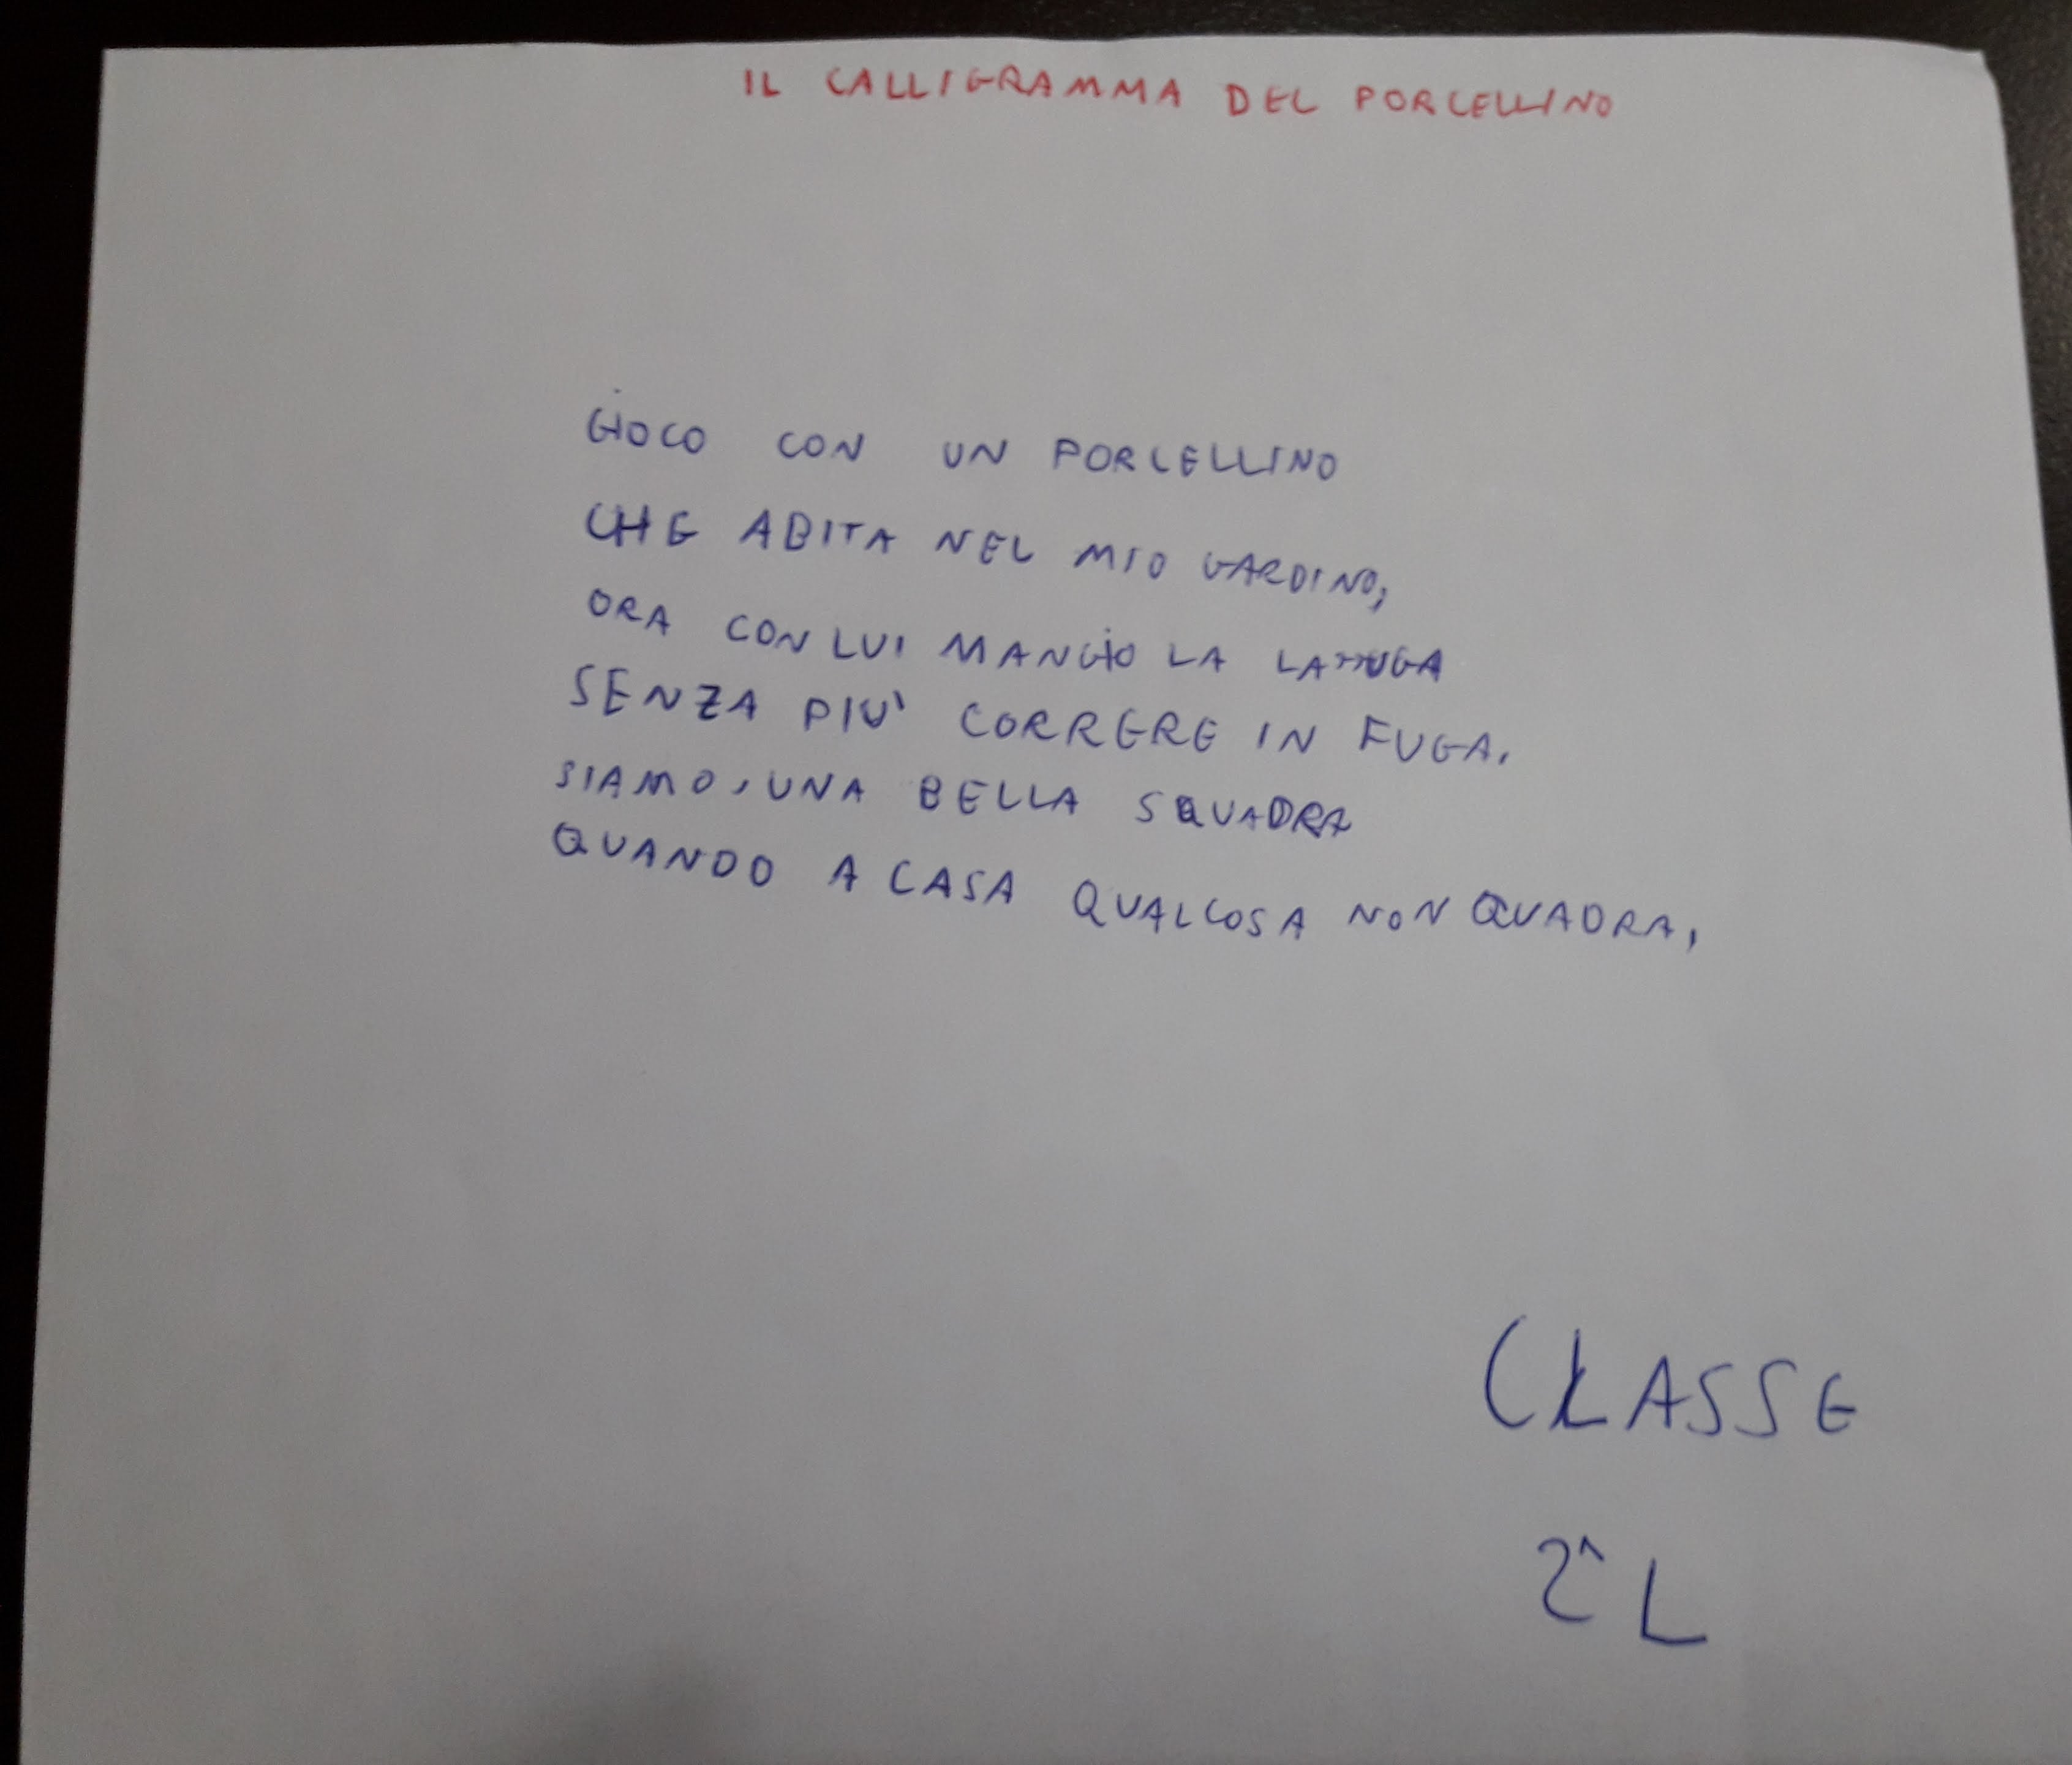 IL CALLIGRAMMA DEL PORCELLINO
GIOCO CON UN PORCELLINO
CHE ABITA NEL MIO GARDINO,
ORA CON LUI MANGIO LA LATTUGA
SENZA PIU' CORRERE IN FUGA.
SIAMO, UNA BELLA SQUADRA
QUANDO A CASA QUALCOSA NON QUADRA,
CLASSE
2^ L